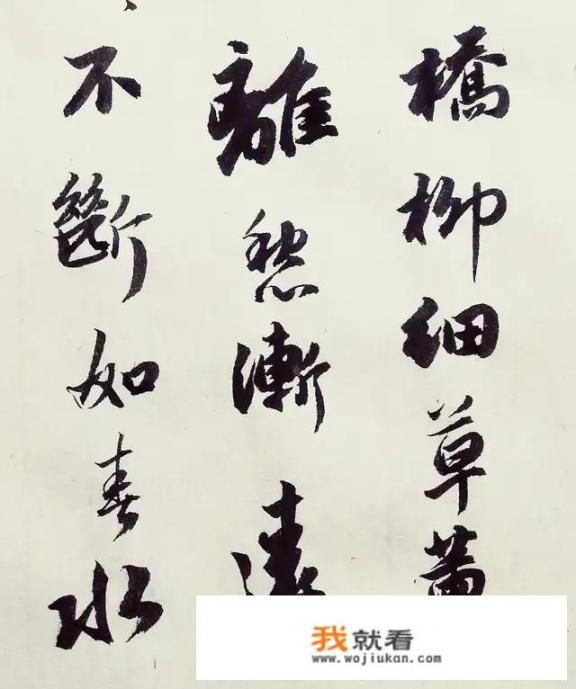 橋柳細草薰
離愁漸遠
不斷如春水
我就看
www.wojiukan.com